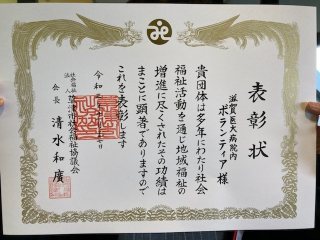 表彰状
滋賀医大病院内
ボランティア様
貴団体は多年にわたり社会
福祉活動を通じ地域福祉の
増進に尽くされたその功績は
まことに顕著でありますので
これを表彰します
令和
社会福祉
法人
草津市社会福祉協議会
会長 清水和廣